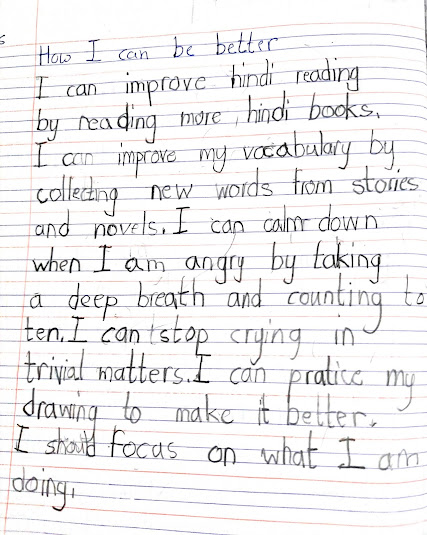 How I can be better
I can improve hindi reading
by reading more hindi books.
I can improve my vocabulary by
collecting new words from stories
and novels. I can calm down
when I am angry by taking
a deep breath and counting to
ten. I can stop crying in
trivial matters. I can pratice my
drawing to make it better.
I should focus on what I am
doing.